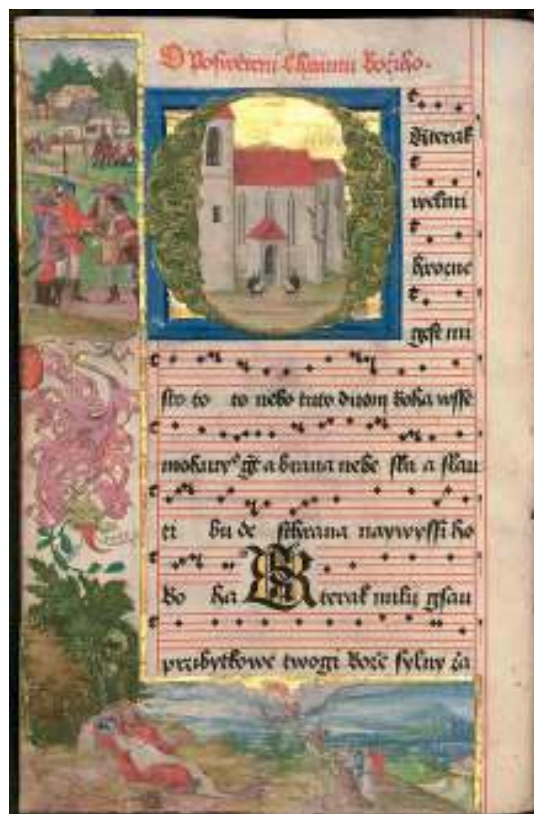 O Poswěceni Chrámu Božiho.
Kterak
welmi
hrozne
gest mi
sto to to nebo tuto duom boha wsse
mohucyº gt a brana nebe sla a slau
ti bu de naywyssi ho
Bo ha Kterak milii gsau
przibytkowe twogi Bože sylny ža